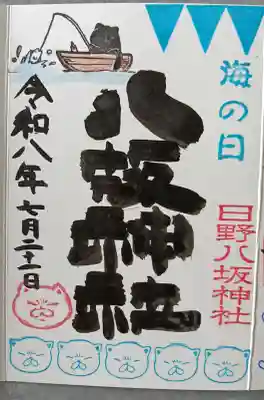 海の日
日野八坂神社
八坂神社
令和八年七月二十一日